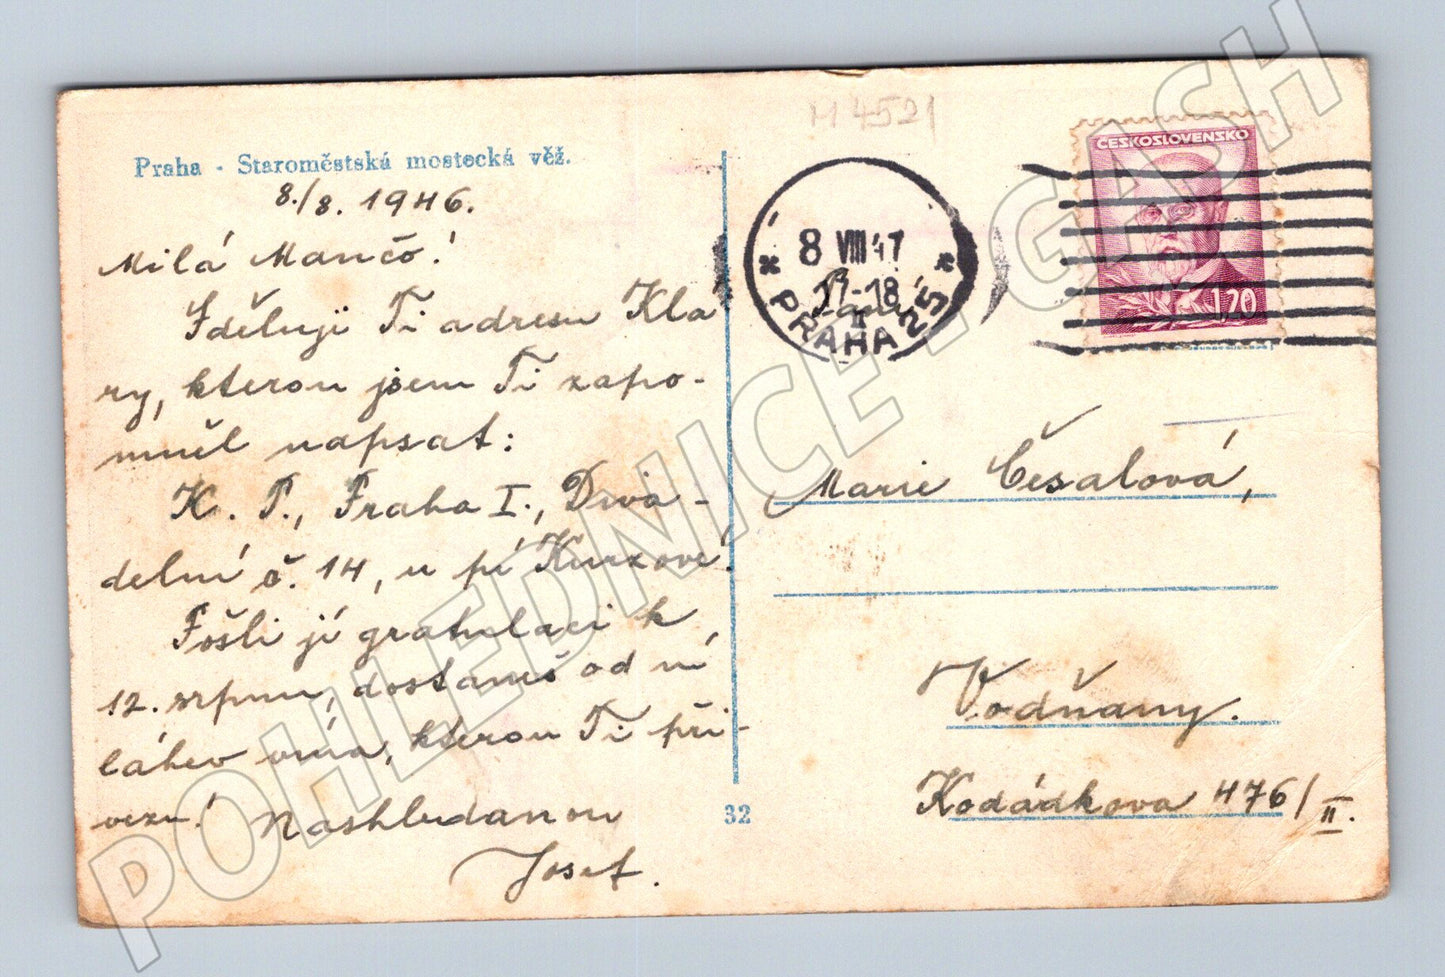 M 4521
Praha - Staroměstská mostecká věž.
8./8. 1946.
Milá Mančo!
Sděluji Ti adresu Kla
ry, kterou jsem Ti zapo-
mněl napsat:
K. P., Praha I., Diva-
delní č. 14, u pí Kurzové.
Pošli jí gratulaci k
12. srpnu, dostaneš od ní
láhev vína, kterou Ti při-
vezu! Nashledanou
Josef.
32
ČESKOSLOVENSKO
1.20
8 VIII 47
17-18
PRAHA 25
Paní
Marie Česalová,
Vodňany.
Kodádkova 476/II.
POHLEDNICE - GASH